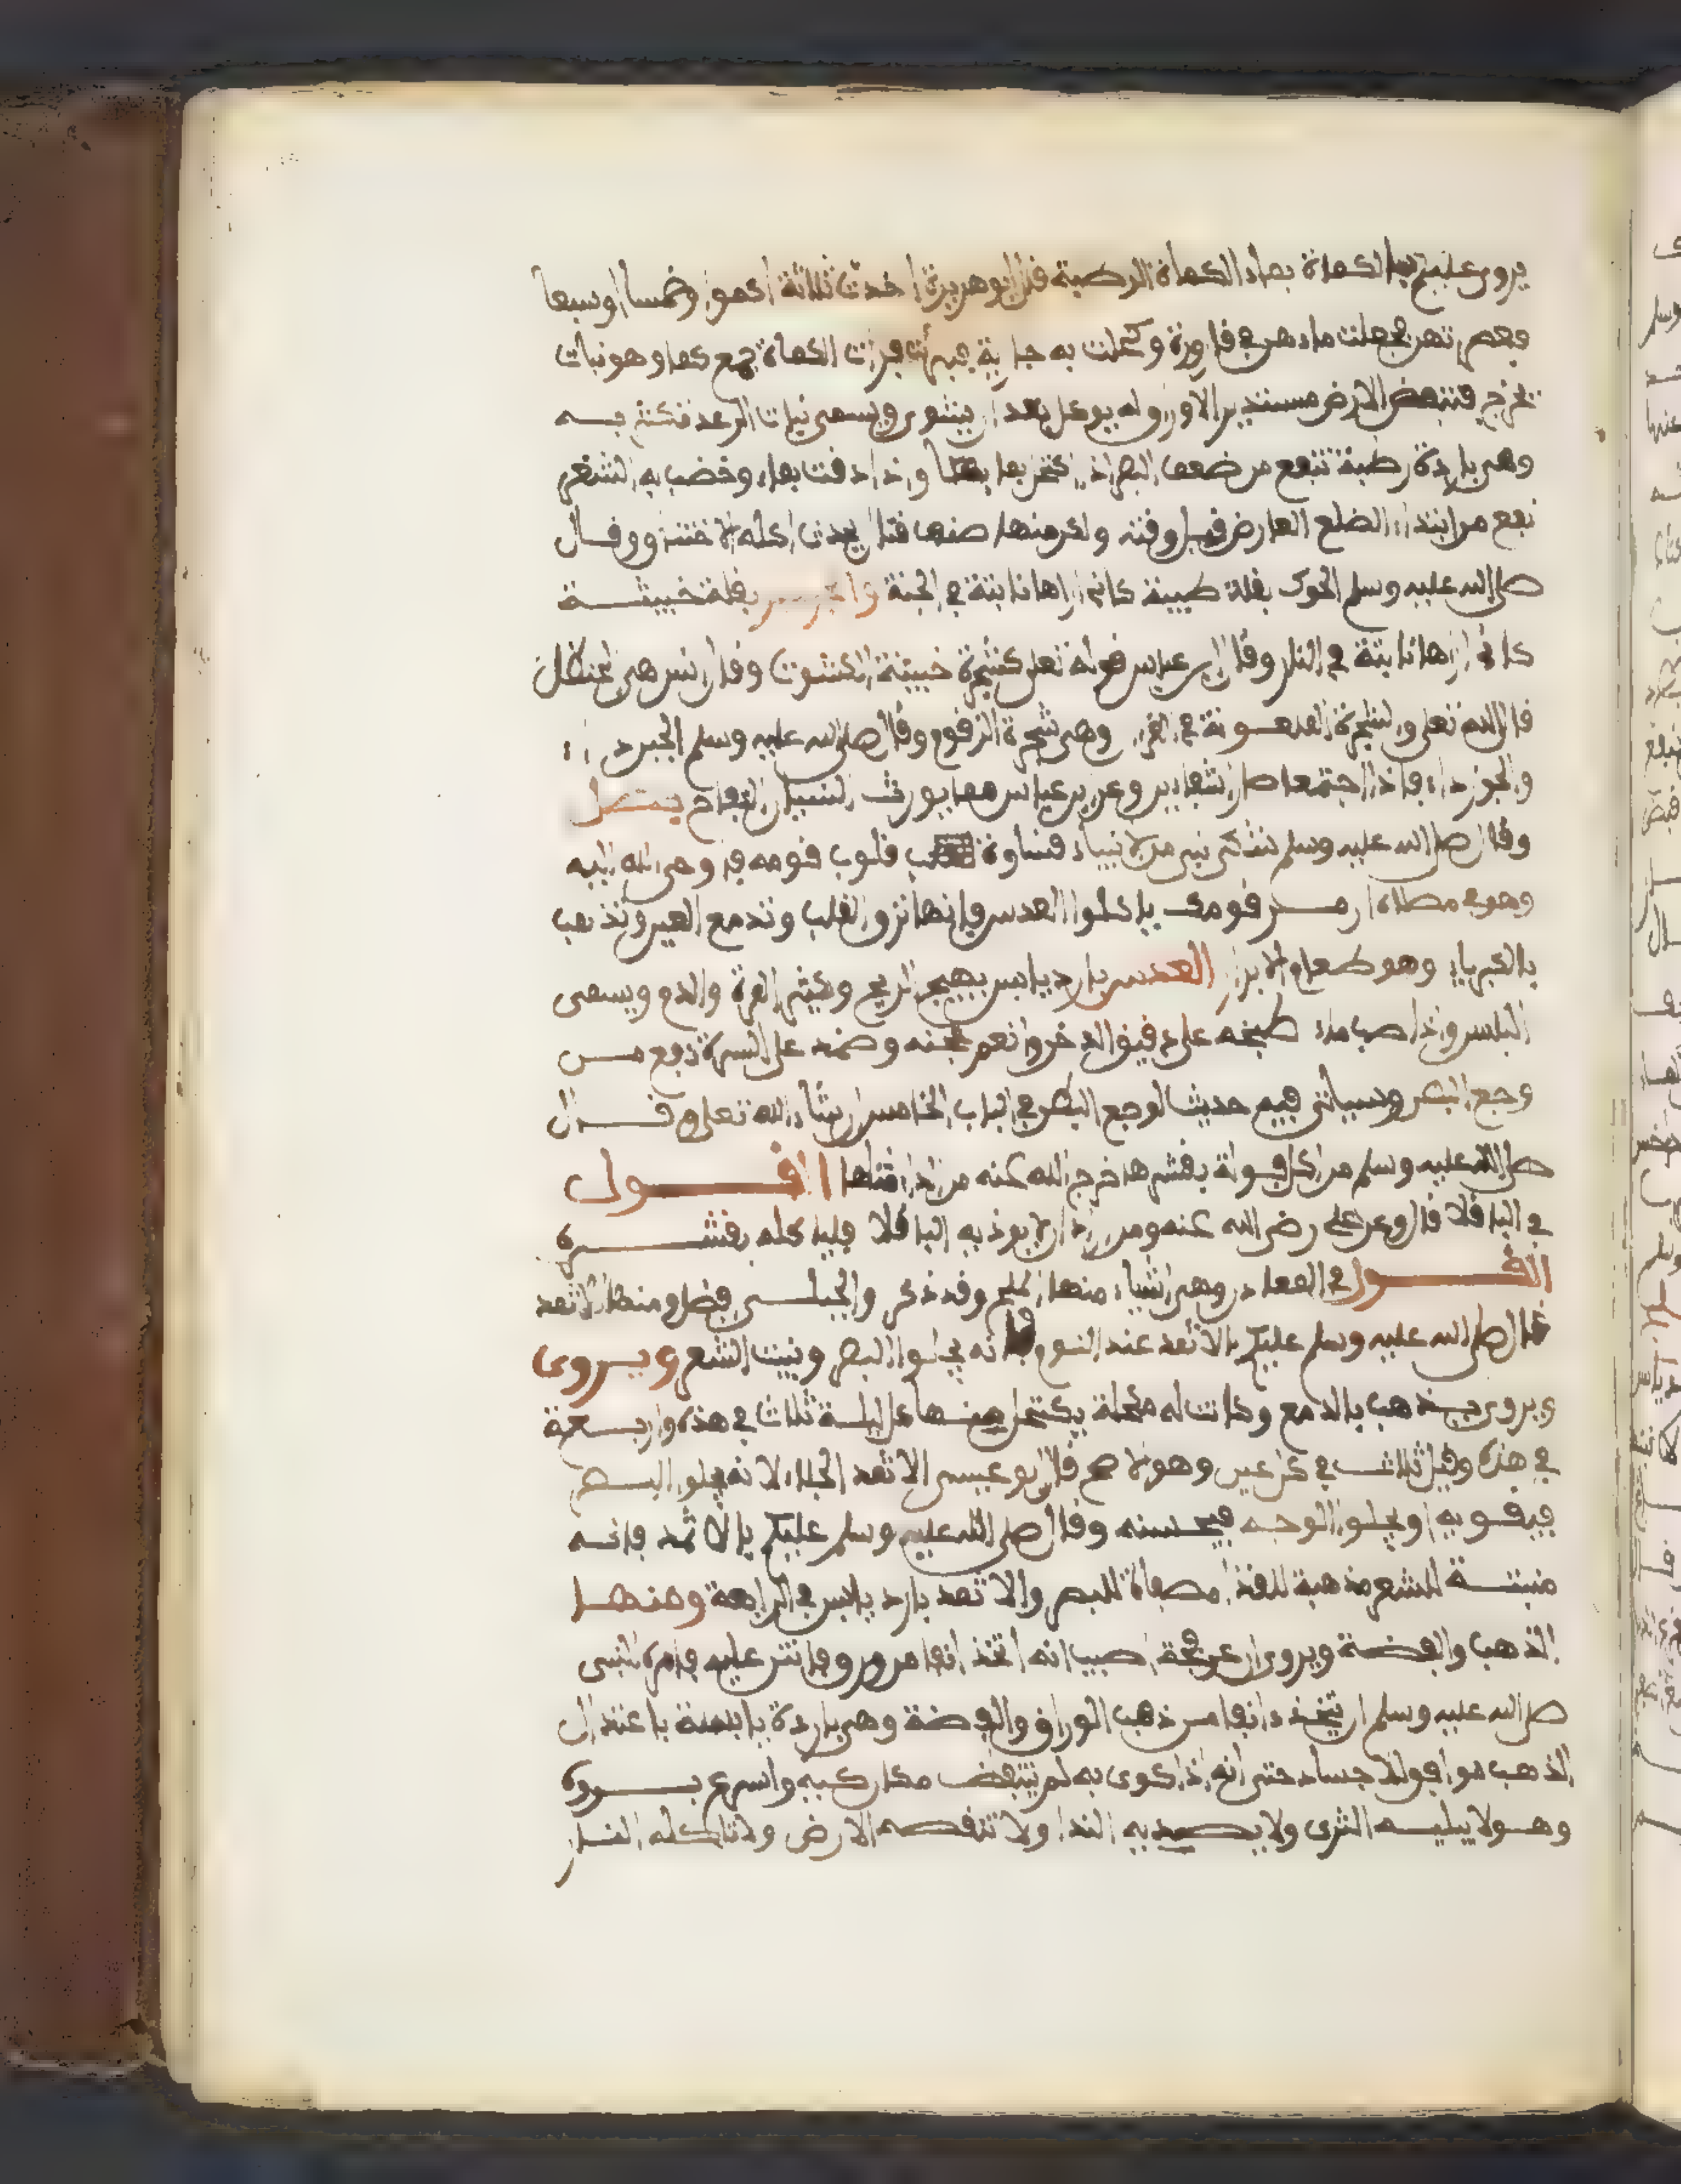 يروى عليكم بماء الكماة بماء الكماة الرطبة قال ابو هريرة اخذت ثلاثة اكمو او خمسا او سبعا
فعصرتهن فجعلت ماءهن في قارورة وكحلت به جارية فبرأت الكماة جمع كما وهو نبات
تخرج فتنفض الارض مستدير الاورق له يوكل بعد ان يشوى ويسمى نبات الرعد فتكثر به
وهي باردة رطبة تنفع من ضعف البصر اذا اكتحل بماءها واذا دقت بماء وخضب به الشعر
نفع من ابتداء الصلع العارض قبل وقته
صلى الله عليه وسلم الحوك بقلة طيبة كاني اراها نابتة في الجنة والجرجير بقلة خبيثة
كاني اراها نابتة في النار وقال ابن عباس قوله تعلى كشجرة خبيثة الكشوت وقال انس هي الحنظل
قال الله تعلى والشجرة الملعونة في القرءان وهي شجرة الزقوم وقال صلى الله عليه وسلم الجبن داء
والجوز داء فاذا اجتمعا صارا شفاءين وعن ابن عباس مما يورث النسيان التفاح يتصل
وقال صلى الله عليه وسلم شكى نبي من الانبياء قساوة قلوب قومه فاوحى الله اليه
وهو في مصلاه ان مر قومك ياكلوا العدس فانها ترق القلب وتدمع العين وتذهب
بالكبرياء وهو طعام الابرار العدس بارد يابس يهيج الريح وكيثر المرة والدم ويسمى
البلس واذا صب ماء طبيخه على دقيق الدخن وانعم عجنه وضمد على السرة نفع من
وجع البطن وسياتي فيه حديث لوجع البطن في الباب الخامس ان شاء الله تعلى وقال
صلى الله عليه وسلم من اكل فولة بقشرها اخرج الله منه من الداء مثلها القول
في الباقلا قال وعن علي رضي الله عنه ومن اراد ان لا يوذيه الباقلا فلياكله بقشره
القول في المعادن وهي اشياء منها الملح وقد ذكر والجبلي افضل ومنها الاثمد
قال صلى الله عليه وسلم عليكم بالاثمد عند النوم فانه يجلوا البصر وينبت الشعر ويروى
ويروى يذهب بالدمع وكانت له مكحلة يكتحل منها كل ليلة ثلاث في هذه واربعة
في هذه وقيل ثلاث في كل عين وهو الاصح قال ابو عيسى الاثمد الجلاء لانه يجلو البصر
فيقويه او يجلوا الوجه فيحسنه وقال صلى الله عليه وسلم عليكم بالاثمد فانه
منبتة للشعر مذهبة للقذا مصفاة للبصر والاثمد بارد يابس في الرابعة ومنها
الذهب والفضة ويروى ان عرفجة اصيب انفه اتخذ انفا من ورق فانتن عليه فامره النبي
صلى الله عليه وسلم ان يتخذ انفا من ذهب الوراق والفضة وهي باردة يابسة باعتدال
الذهب هو اقوى الاجساد حتى انه اذا كوى به لم يتنفض مكان كيه واسرع برءه
وهو لا يبليه الثرى ولا يصديه الندا ولا تنقصه الارض ولا تاكله النار